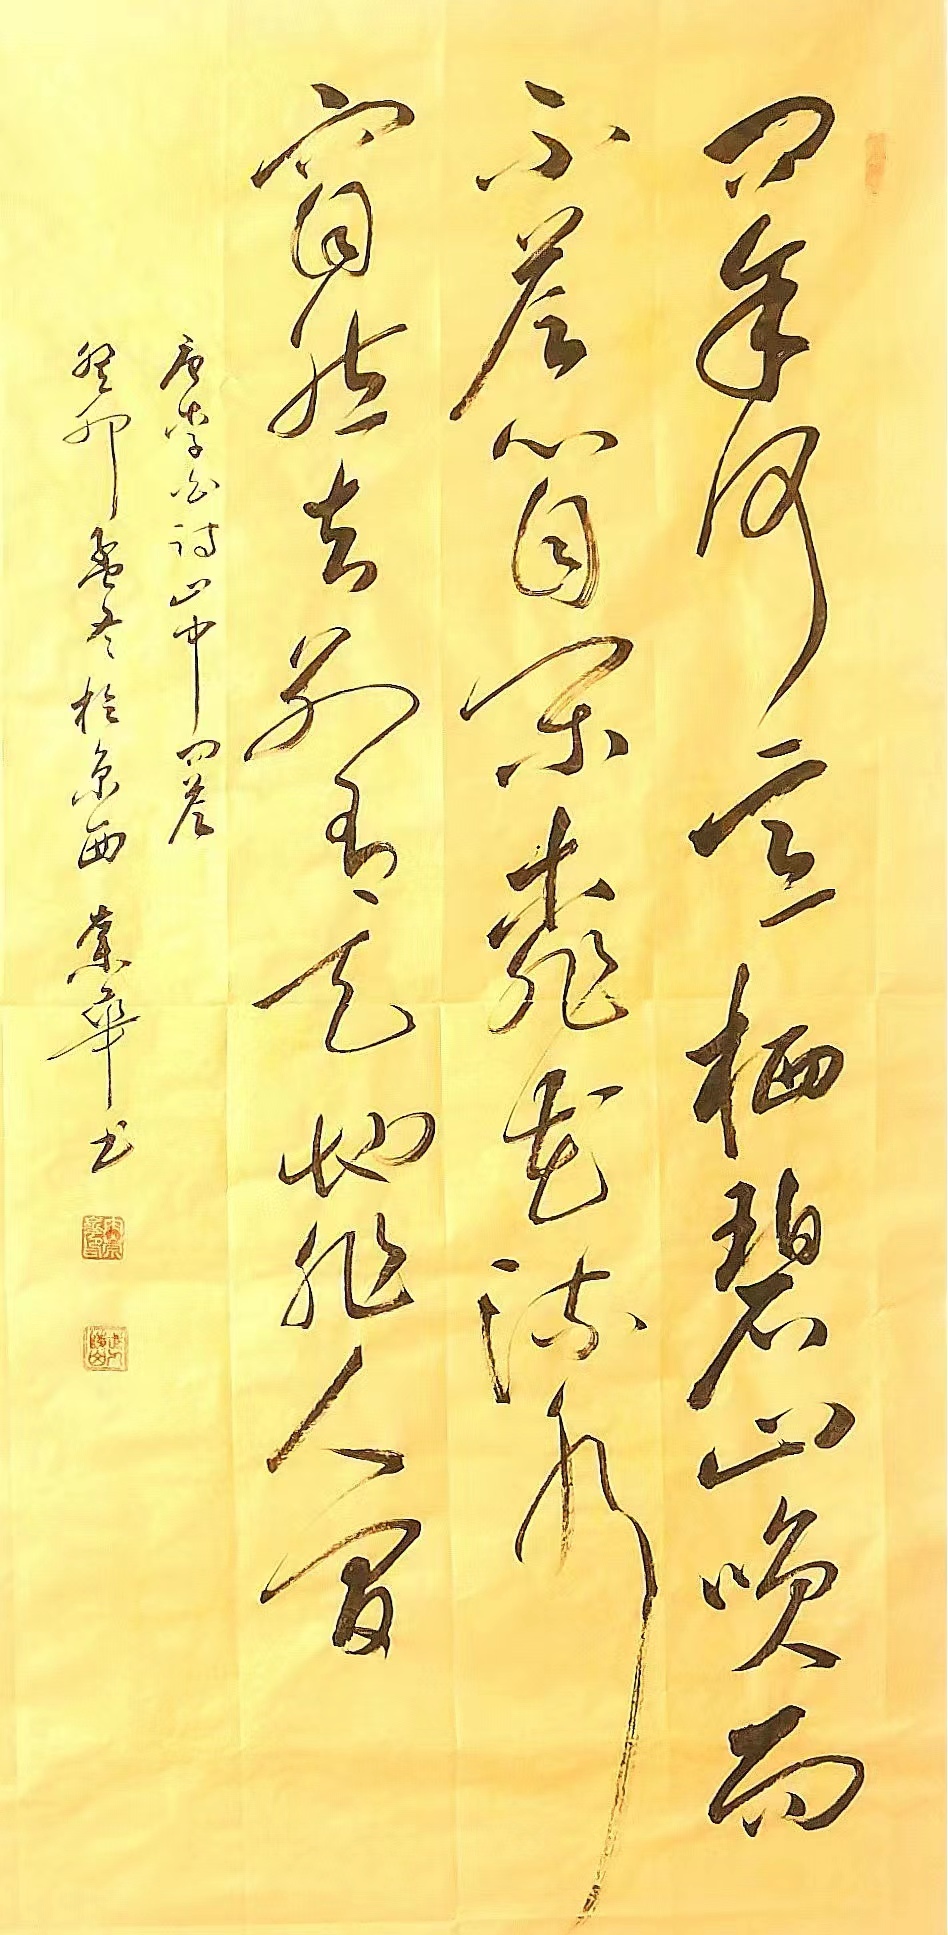 问余何意栖碧山咲而
不答心自闲桃花流水
窅然去别有天地非人间
唐李白詩山中问答
癸卯孟冬於京西 華书